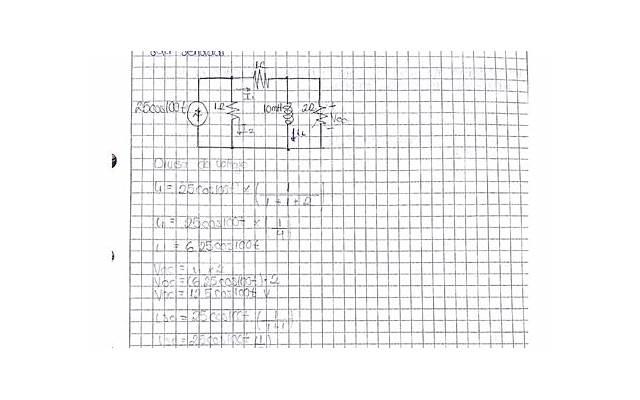 25cos100t
1Ω
1Ω
I₁
I₂
10mH
iL
2Ω
+
Voc
-
Divisor de voltaje
i₁ = 25cos100t × (1 / 1+1+2)
i₁ = 25cos100t × (1/4)
i₁ = 6.25cos100t
Voc = i₁ × 2
Voc = (6.25cos100t) × 2
Voc = 12.5cos100t V
= 25cos100t (1 / 1+1)
= 25cos100t